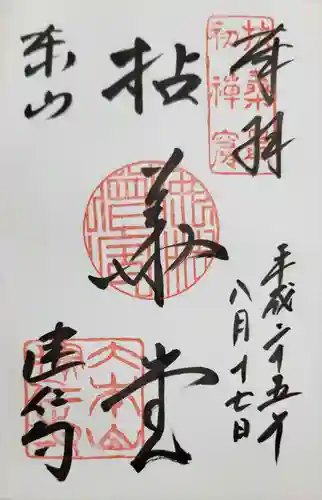 奉拝
平成二十五年
八月十七日
拈華堂
東山
建仁寺
扶桑最
初禪窟
大本山
建仁寺